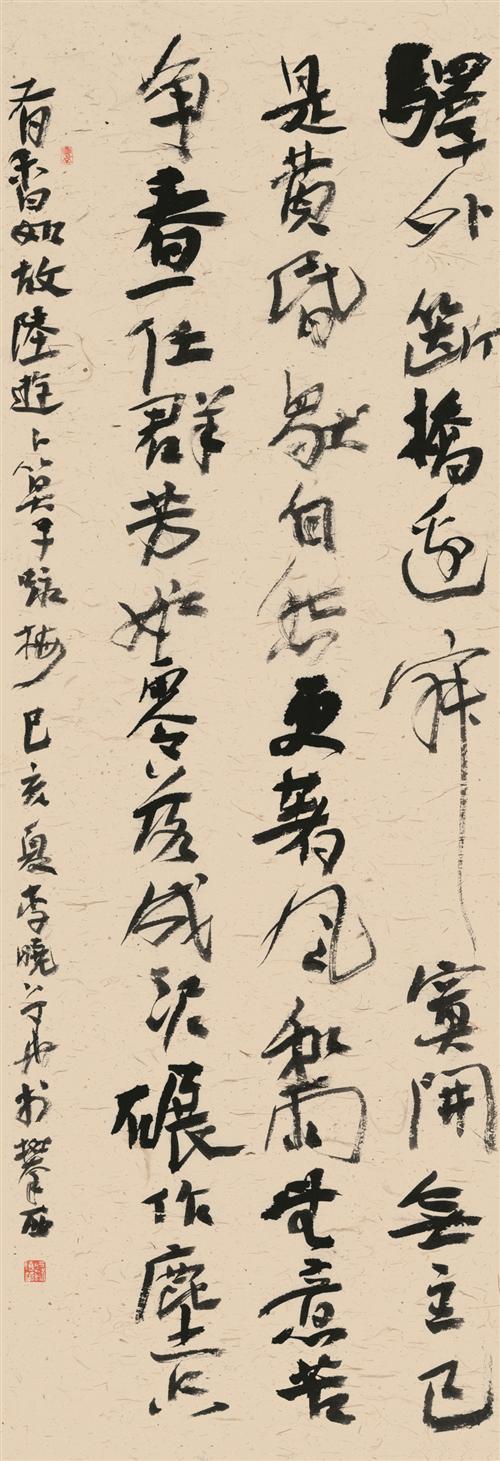 驛外斷橋邊寂寞開無主已
是黃昏獨自愁更著風和雨無意苦
爭春一任群芳妒零落成泥碾作塵只
有香如故陸遊卜算子咏梅己亥夏李曉於攀西